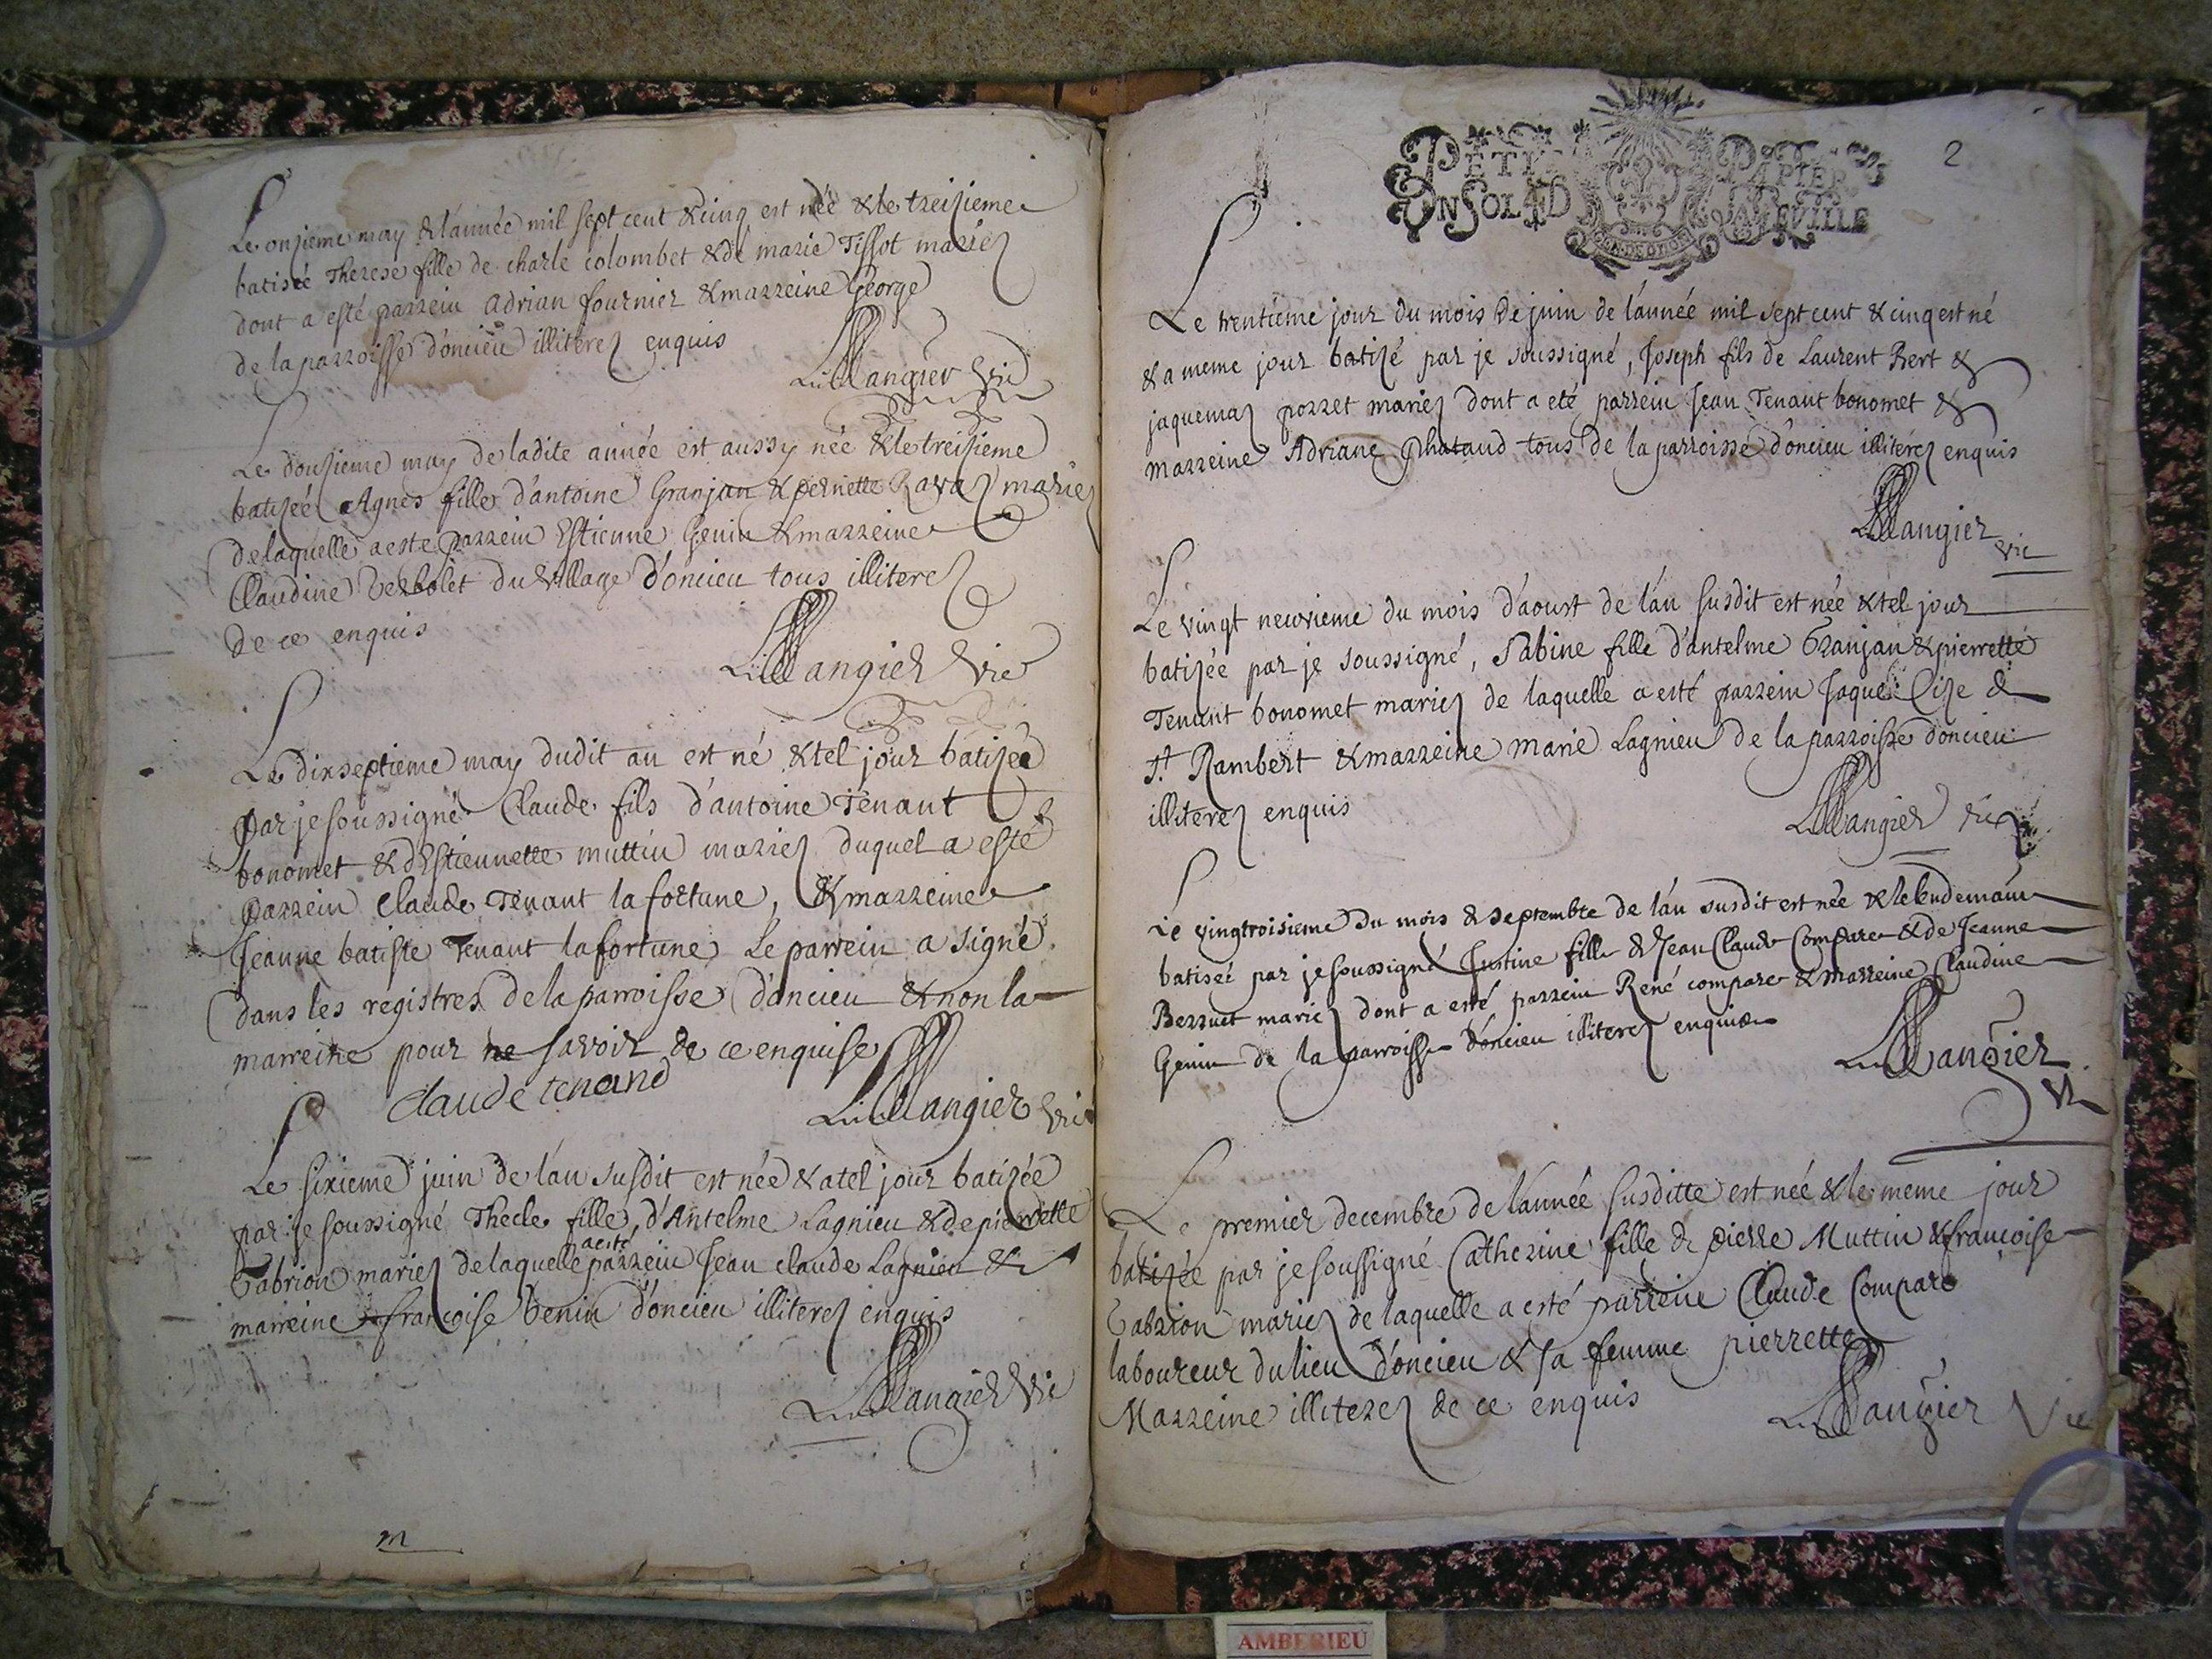 Le onzieme may & l'année mil sept cent & cinq est née & le treizieme
batisée Therese fille de charle colombet & de marie Tissot mariez
dont a esté parrein adrian fournier & marreine George
de la parroisse d'oncieu illiterez enquis
Langier vic
Le douzieme may de ladite année est aussy née & le treizieme
batizée Agnes fille d'antoine Granjan & pernette Ravaz mariez
de laquelle a este parrein Estienne Genin & marreine
Claudine Verbolet du village d'oncieu tous illiterez
de ce enquis
Langier Vic
Le dixseptieme may dudit an est né & tel jour batizée
par je soussigné Claude fils d'antoine Tenant
bonomet & d'Estiennette muttin mariez duquel a esté
parrein Claude Tenant la fortune, & marreine
Jeanne batiste Tenant la fortune Le parrein a signé
dans les registres de la parroisse d'oncieu & non la
marreine pour ne savoir de ce enquise
claude tenand
Langier vic
Le sixieme juin de l'an susdit est née & a tel jour batizée
par je soussigné Thecle fille, d'Antelme Lagnieu & de pierrette
Gabrion mariez de laquelle a esté parrein Jean claude Lagnieu &
marreine francoise Genin d'oncieu illiterez enquis
Langier Vic
m
PETIT PAPIER
UN SOL 4 D LA FEVILLE
2
Le trentiéme jour du mois de juin de l'année mil sept cent & cinq est né
& a meme jour batizé par je soussigné, Joseph fils de Laurent Bert &
jaquemaz porret mariez dont a eté parrein Jean Tenant bonomet &
marreine Adriane Chataud tous de la parroisse d'oncieu illitérez enquis
Langier vic
Le vingt neuvieme du mois d'aoust de l'an susdit est née & tel jour
batizée par je soussigné, Sabine fille d'antelme Granjan & pierrette
Tenant bonomet mariez de laquelle a esté parrein Jaque Cize de
St Rambert & marreine marie Lagnieu de la parroisse d'oncieu
illiterez enquis
Langier vic
Le vingtroisieme du mois & septembre de l'an susdit est née & le lendemain
batisée par je soussigné Justine fille & Jean Claude Compare & de Jeanne
Berruet mariez dont a esté parrein René compare & marreine Claudine
Genin de la parroisse d'oncieu illiterez enquis
Langier
Vic
Le premier decembre de l'année susditte est née & le meme jour
batizée par je soussigné Catherine fille de pierre Muttin & francoise
Gabrion mariez de laquelle a esté parrein Claude Compare
laboureur du lieu d'oncieu & sa femme pierrette
Marreine illiterez de ce enquis
Langier Vic
AMBERIEU